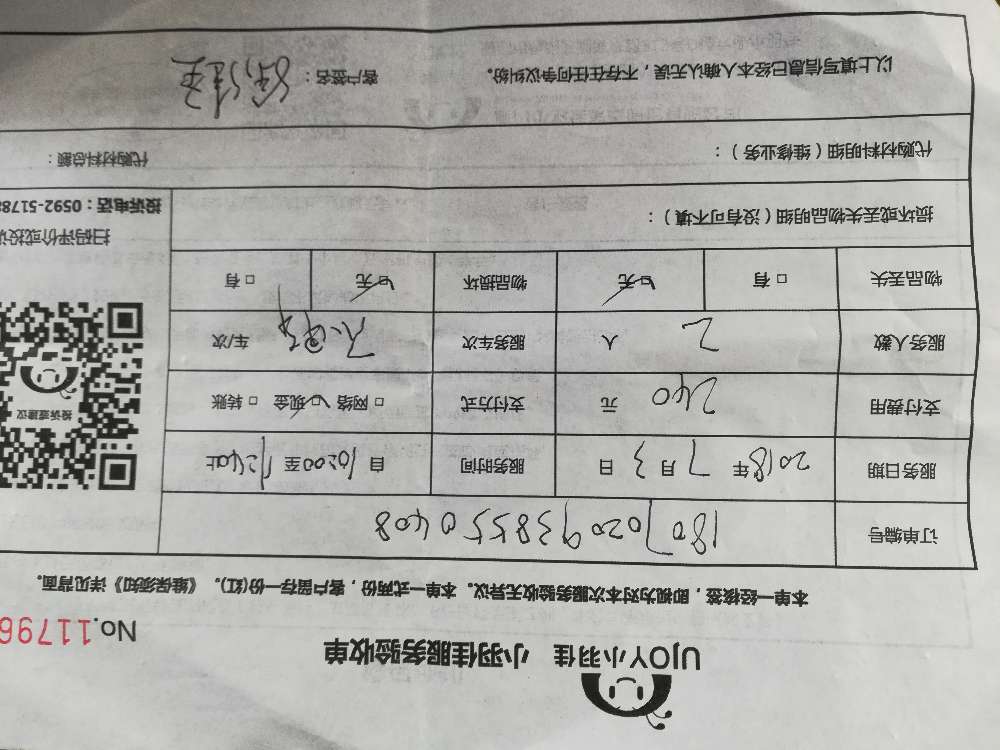 UJOY小羽佳 小羽佳服务验收单
No.11796
本单一经核签，即视为对本次服务验收无异议。本单一式两份，客户留存一份(红)。《维保须知》详见背面。
订单编号 18070209385550408
服务日期 2018年 7月3日 服务时间 自10:00至12:40止
支付费用 240 元 支付方式 □网络 ☑现金 □转账
服务人数 2 人 服务车次 车/次
物品丢失 □有 ☑无 物品损坏 ☑无 □有
投诉或建议
扫码评价或投诉
投诉电话：0592-5178
损坏或丢失物品明细（没有可不填）：
代购材料明细（维修业务）：
代购材料总额：
以上填写信息已经本人确认无误，不存在任何争议纠纷。 客户签名：